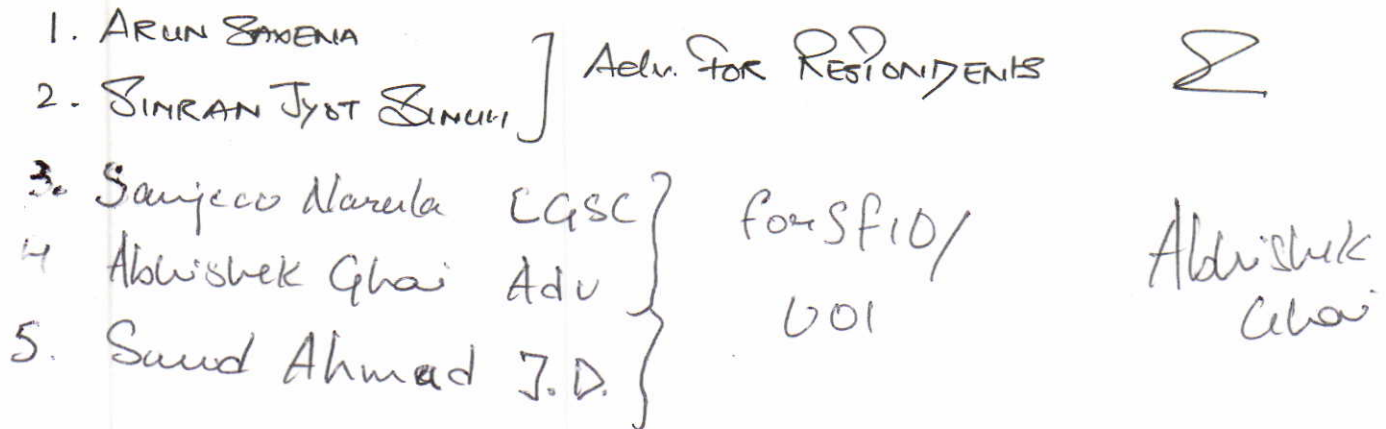 1. ARUN SAXENA
2. SIMRAN JYOT SINGH
] Adv. FOR RESPONDENTS
3. Sanjeev Narula CGSC
4 Abhishek Ghai Adv
5. Saud Ahmad J.D.
} for SFIO/
UOI
Abhishek
Ghai